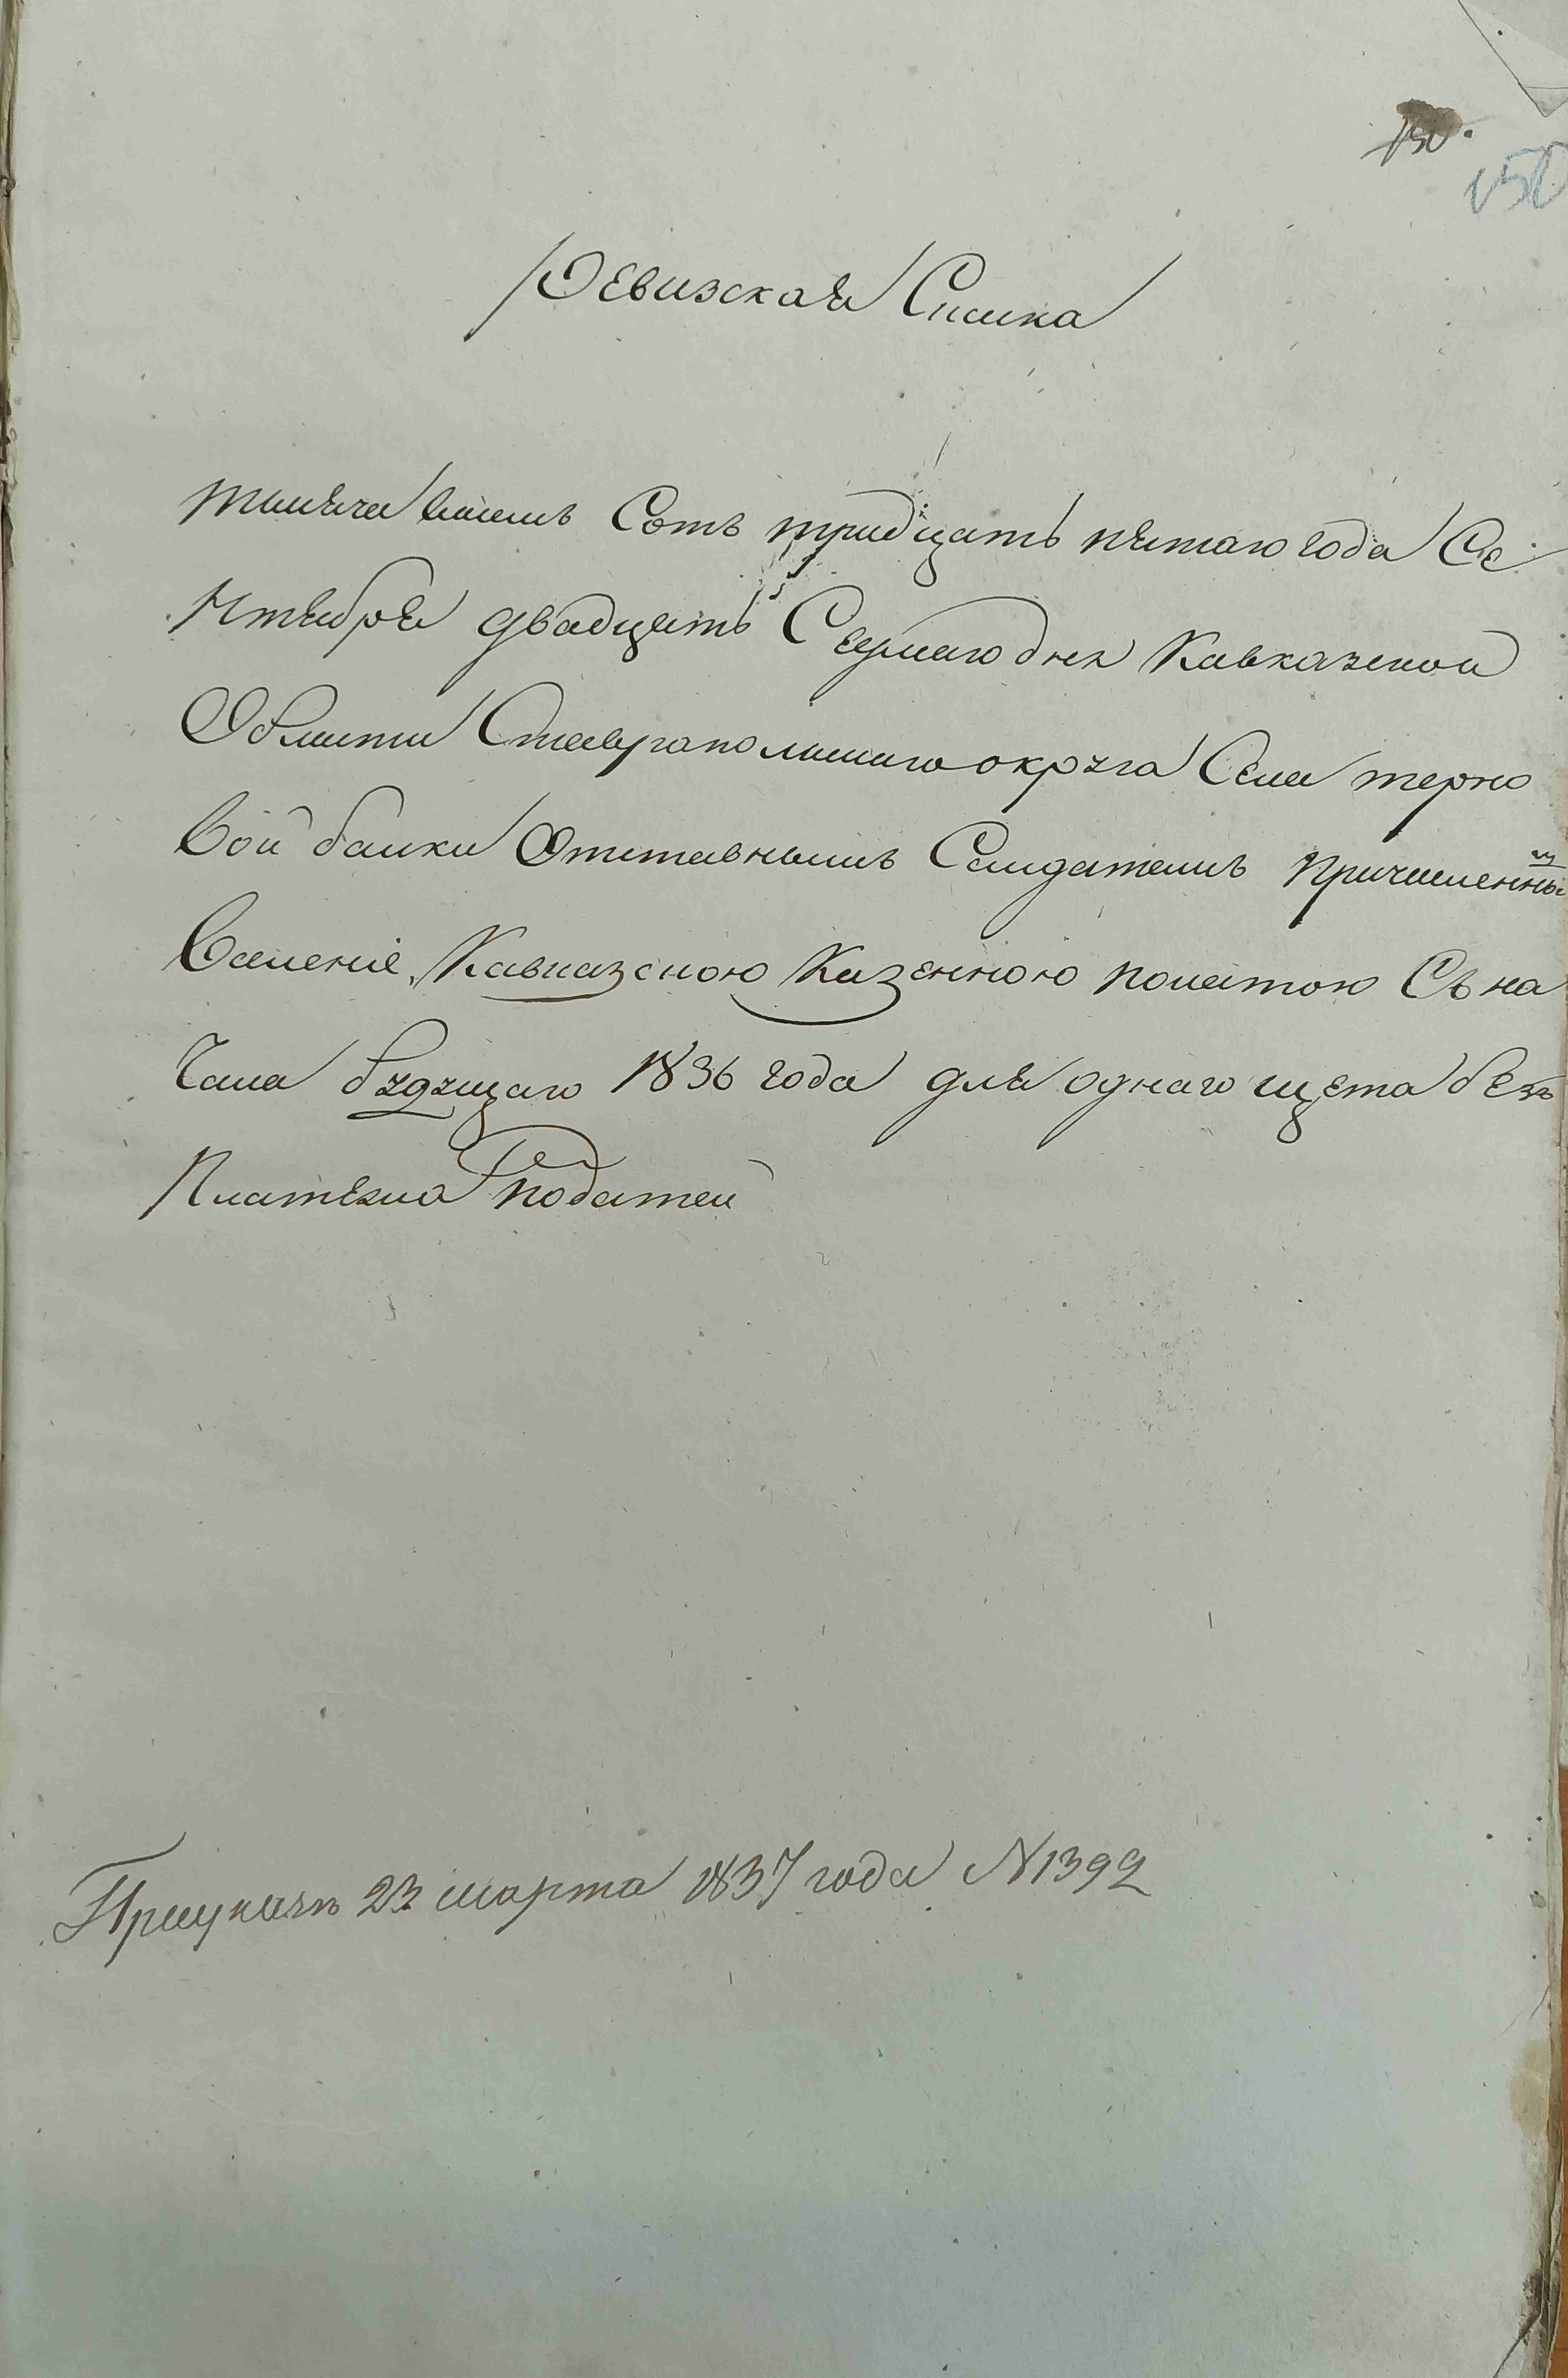 150.
150
Ревизская Сказка
тысяча восемь Сотъ тридцать пятаго года Се
нтября двадцать Седмаго дня Кавказской
Области Ставрапольскаго округа Села терно
вой балки Отставнымъ Салдатамъ причисленны м
Вселение Кавказскою Казенною полатою Съ на
Чала будущаго 1836 года для однаго щета безъ
Платежа податей
23 марта 1837 года N 1392